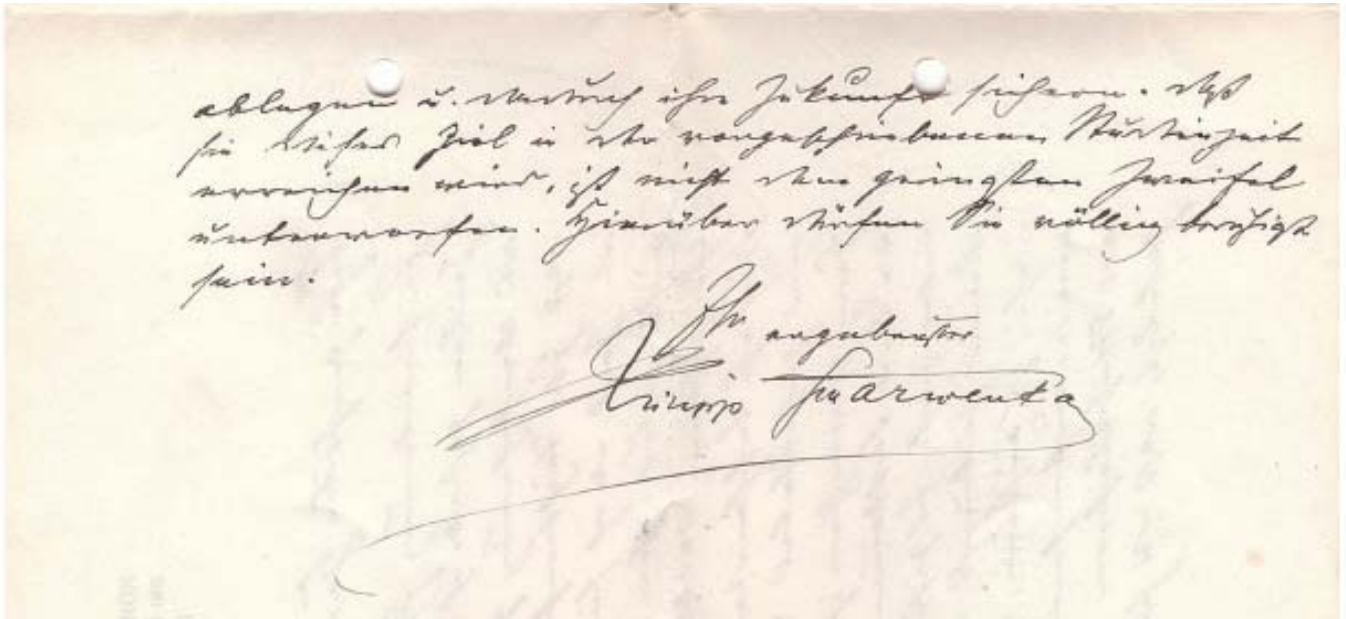 ablegen u. dadurch ihre Zukunft sichern. Daß
sie dieses Ziel in der vorgeschriebenen Studienzeit
erreichen wird, ist nicht dem geringsten Zweifel
unterworfen. Hierüber dürfen Sie völlig beruhigt
sein.
Ihr ergebenster
Philipp Scharwenka